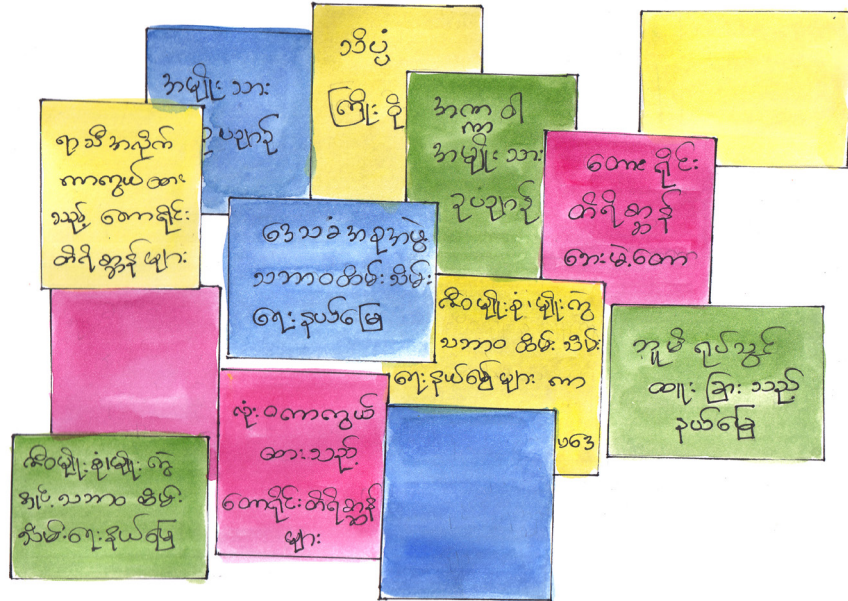 အမျိုးသား
ဥပဒျာဉ်
သိပ္ပံ
ကြိုးဝိုင်း
အဏ္ဏဝါ
အမျိုးသား
ဥပဒျာဉ်
ရာသီအလိုက်
ကာကွယ်ထား
သည့် တောရိုင်း
တိရိစ္ဆာန်များ
တောရိုင်း
တိရိစ္ဆာန်
ဘေးမဲ့တော
ဒေသခံအစုအဖွဲ့
သဘာဝထိမ်းသိမ်း
ရေးနယ်မြေ
ဇီဝမျိုးစုံ၊မျိုးကွဲ
သဘာဝ ထိမ်းသိမ်း
ရေးနယ်မြေများ ကာ
ပဒေ
ဘူမိရုပ်သွင်
ထူးခြားသည့်
နယ်မြေ
လုံးဝကာကွယ်
ထားသည့်
တောရိုင်းတိရိစ္ဆာန်
များ
ဇီဝမျိုးစုံမျိုးကွဲ
အုပ်သဘာဝ ထိမ်း
သိမ်းရေးနယ်မြေ